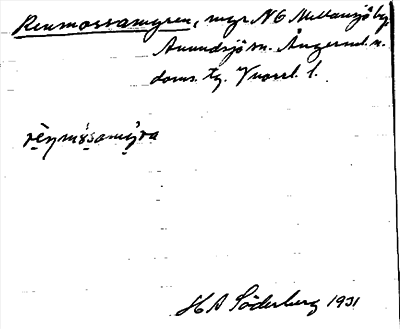 Renmossamyren, myr N6 Mellansjö by
Anundsjö sn. Ångerml. n.
doms. tg. Vnorrl. l.
rēŋmỳsamy̆ra
H A Söderberg 1931